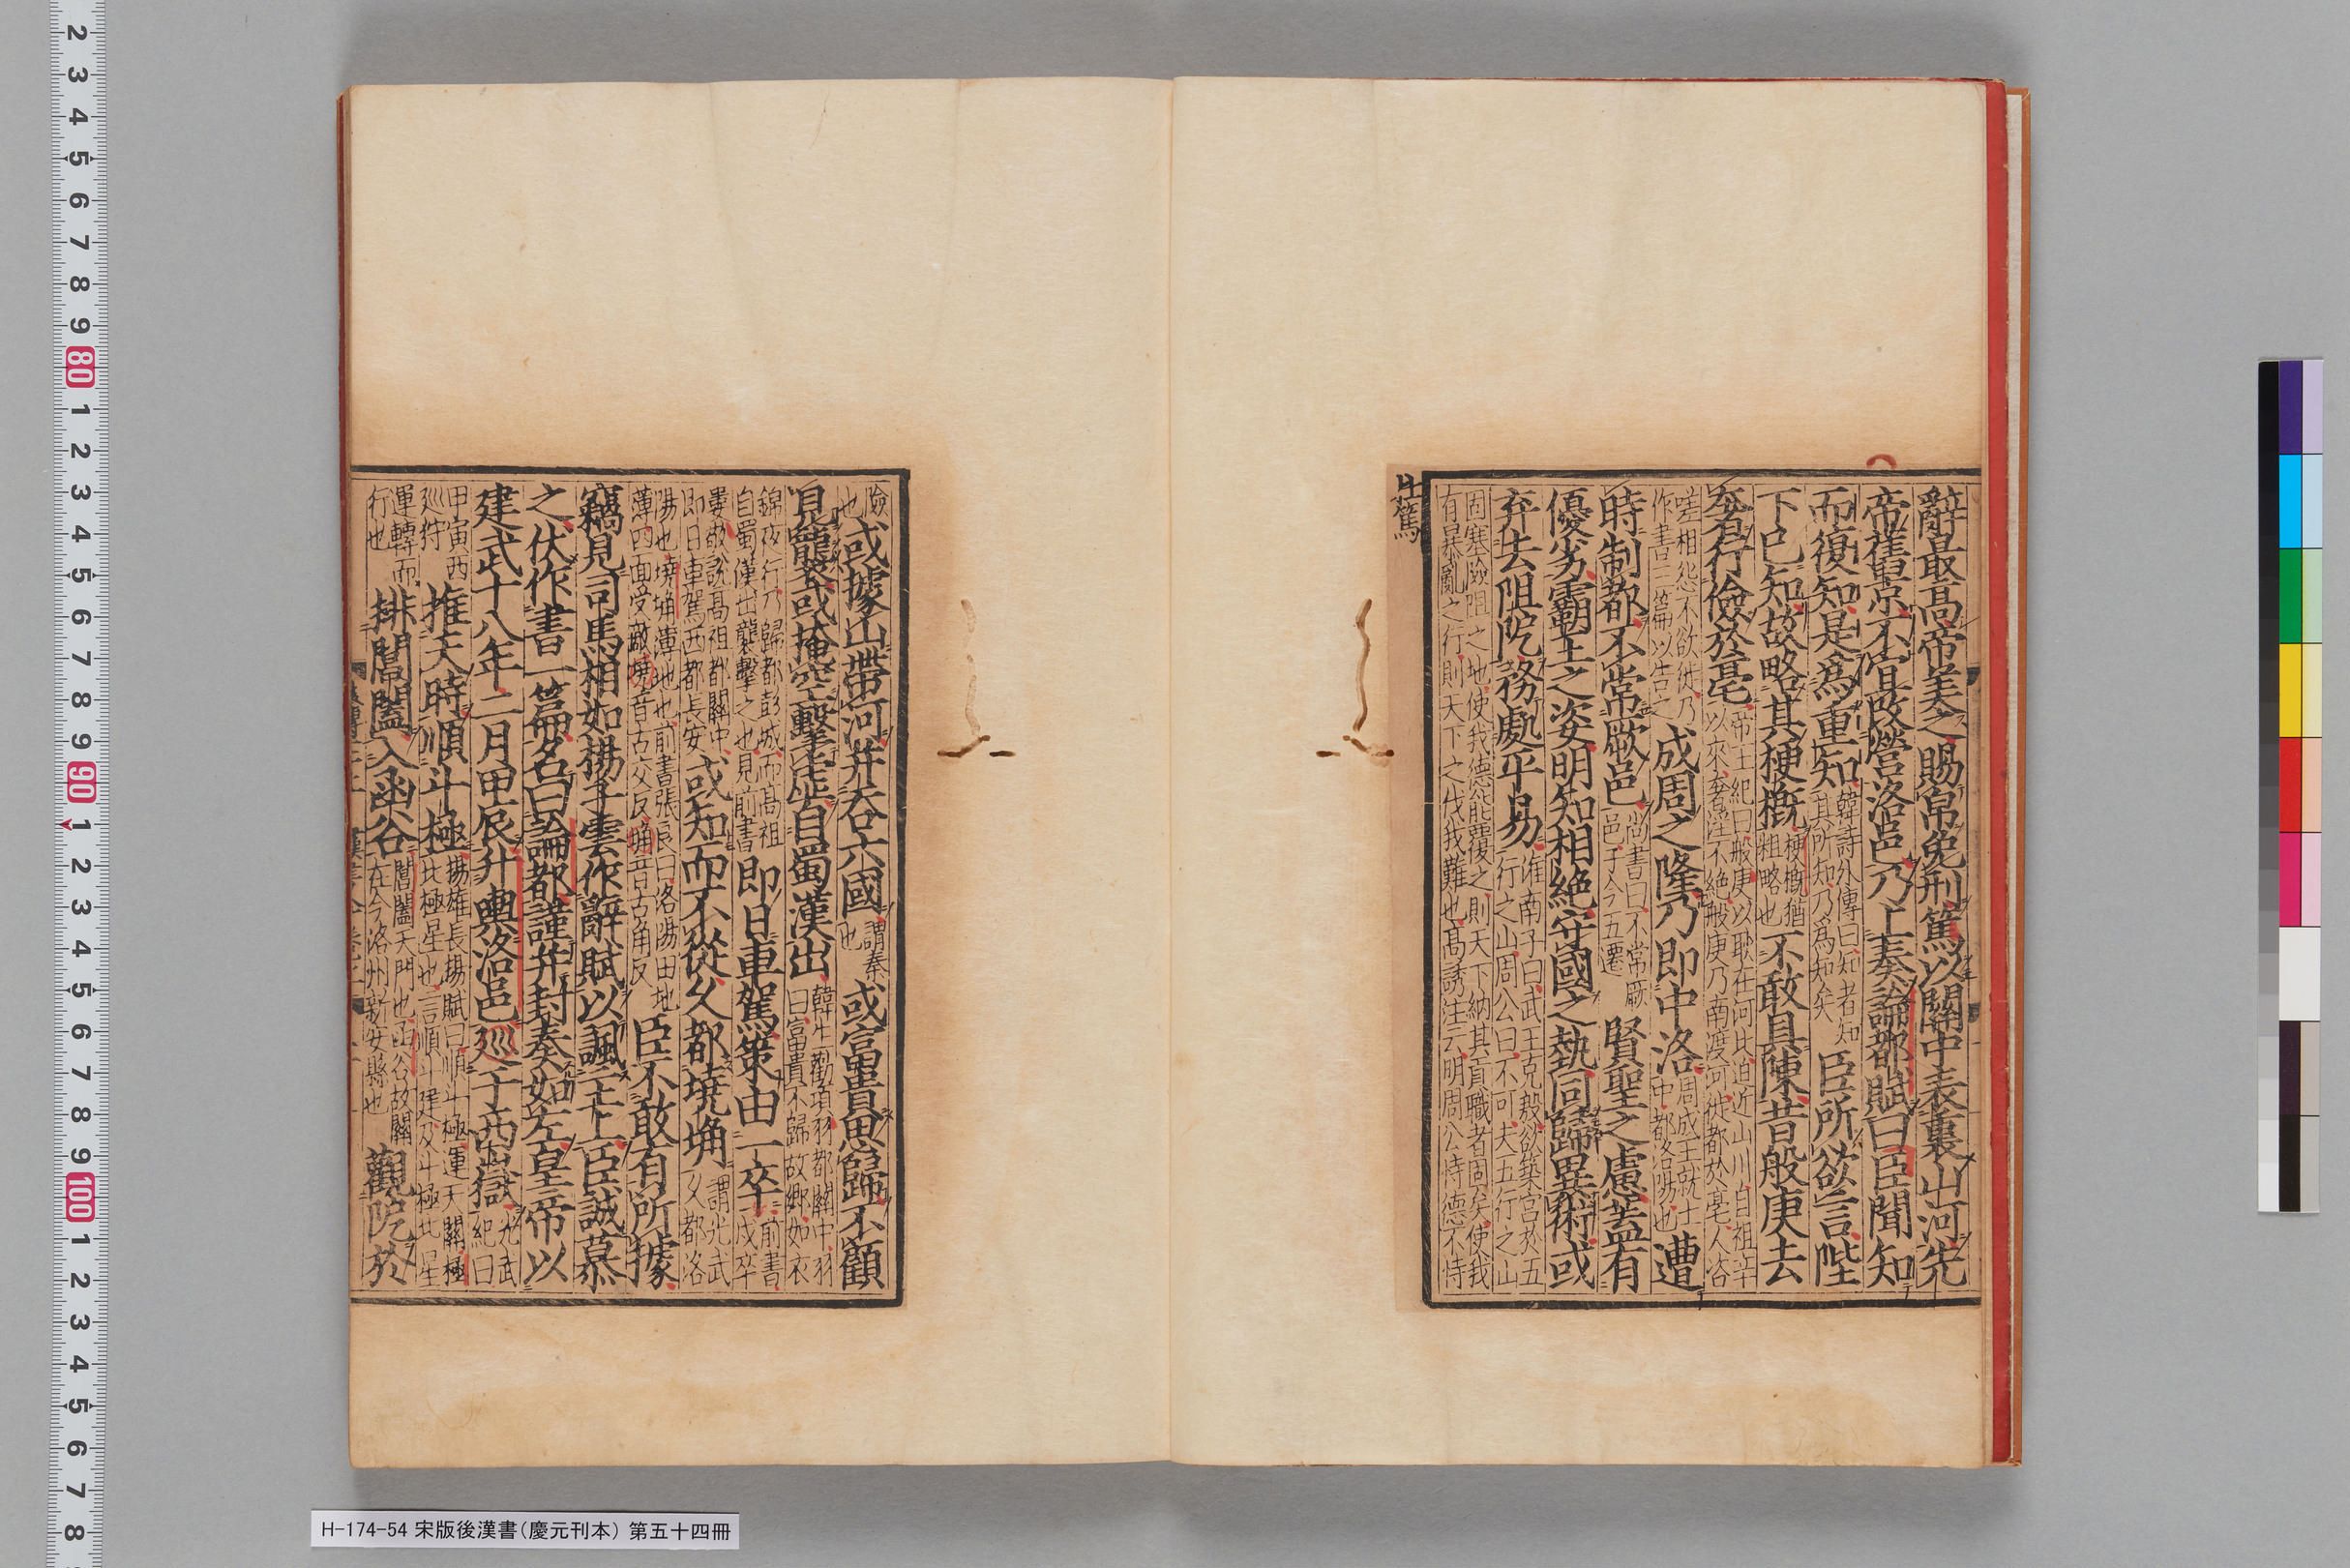 辭最高帝美之賜帛免刑篤以關中表裏山河先
帝舊京不宜改營洛邑乃上奏論都賦曰臣聞知
而復知是爲重知韓詩外傳曰知者知其所知乃爲知矣臣所欲言陛
下已知故略其梗槩梗槩猶粗略也不敢具陳昔般庚去
奢行儉於亳帝王紀曰般庚以耿在河北迫近山川自祖辛以來奢淫不絶般庚乃南渡河徙都於亳人咨
嗟相怨不欲徙乃作書三篇以告之成周之隆乃即中洛周成王就土中都洛陽也遭
時制都不常厥邑尚書曰不常厥邑于今五遷賢聖之慮蓋有
優劣霸王之姿明知相絶守國之埶同歸異術或
弃去阻阨務處平易淮南子曰武王克殷欲築宮於五行之山周公曰不可夫五行之山
固塞險阻之地使我德能覆之則天下納其貢職者固矣使我有暴亂之行則天下之伐我難也高誘注云明周公恃德不恃
杜篤
險也或據山帶河并吞六國謂秦也或富貴思歸不顧
見襲或掩空擊虛自蜀漢出韓生勸項羽都關中羽曰富貴不歸故鄉如衣
錦夜行乃歸都彭城而高祖自蜀漢出襲擊之也見前書即日車駕策由一卒前書戍卒
婁敬說高祖都關中即日車駕西都長安或知而不從久都墝埆謂光武久都洛
陽也墝埆薄地也前書張良曰洛陽田地薄四面受敵墝音古交反埆音古角反臣不敢有所據
竊見司馬相如揚子雲作辭賦以諷主上臣誠慕
之伏作書一篇名曰論都謹并封奏如左皇帝以
建武十八年二月甲辰升輿洛邑巡于西嶽光武紀曰
甲寅西巡狩推天時順斗極揚雄長楊賦曰順斗極運天關極北極星也言順斗建及斗極北星
運轉而行也排閶闔入函谷閶闔天門也函谷故關在今洛州新安縣也觀阨於
2
3
4
5
6
7
8
9
80
1
2
3
4
5
6
7
8
9
90
1
2
3
4
5
6
7
8
9
100
1
2
3
4
5
6
7
8
H-174-54 宋版後漢書（慶元刊本） 第五十四冊